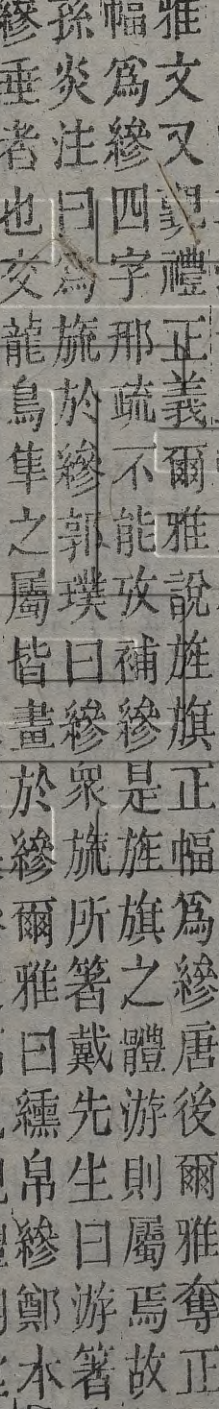 雅文又覲禮正義爾雅說旌旗正幅爲縿唐後爾雅奪正
幅爲縿四字邢疏不能攷補縿是旌旗之體游則屬焉故
孫炎注曰爲旒於縿郭璞曰縿衆旒所箸戴先生曰游箸
縿垂者也交龍鳥隼之屬皆畫於縿爾雅曰纁帛縿鄭本